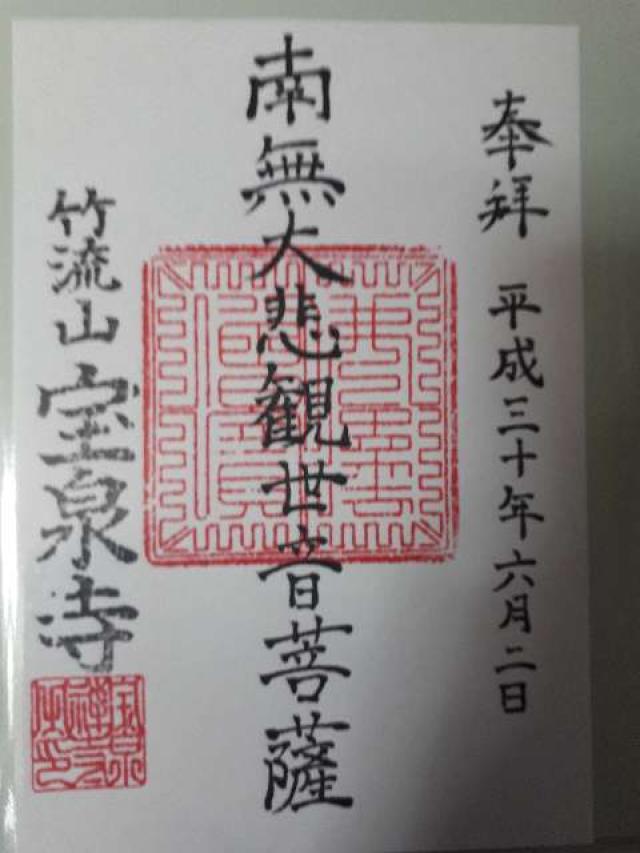 奉拝 平成三十年六月二日
南無大悲観世音菩薩
竹流山宝泉寺